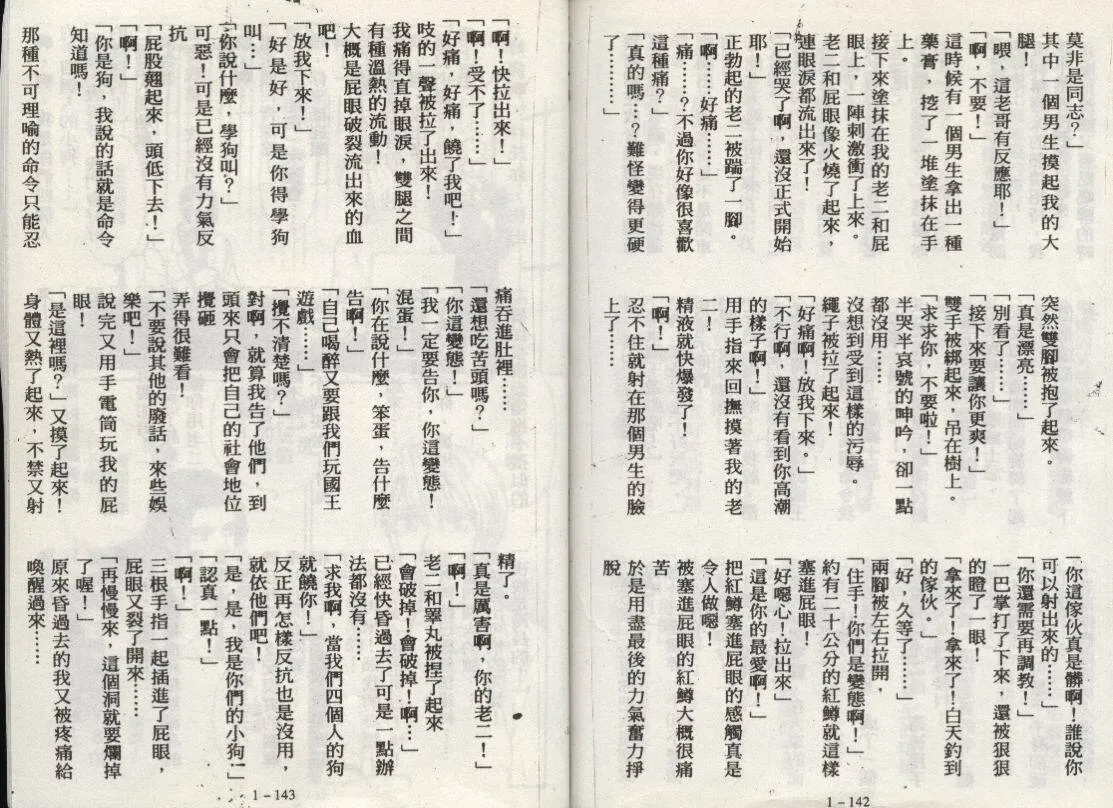 莫非是同志？」
其中一個男生摸起我的大
腿！
「喂，這老哥有反應耶！」
「啊，不要！」
這時候有一個男生拿出一種
藥膏，挖了一堆塗抹在手
上。
接下來塗抹在我的老二和屁
眼上，一陣刺激衝了上來。
老二和屁眼像火燒了起來，
連眼淚都流出來了！
「已經哭了啊，還沒正式開始
耶！」
正勃起的老二被踹了一腳。
「啊！……好痛……」
「痛……？不過你好像很喜歡
這種痛？」
「真的嗎…？難怪變得更硬
了…………」
突然雙腳被抱了起來。
「真是漂亮……」
「別看了……」
「接下來要讓你更爽！」
雙手被綁起來，吊在樹上。
「求求你，不要啦！」
半哭半哀號的呻吟，卻一點
都沒用……
沒想到受到這樣的污辱。
繩子被拉了起來！
「好痛啊！放我下來。」
「不行啊，還沒有看到你高潮
的樣子啊！」
用手指來回撫摸著我的老
二！
精液就快爆發了！
「啊！」
忍不住就射在那個男生的臉
上了……
「你這傢伙真是髒啊！誰說你
可以射出來的……」
「你還需要再調教！」
一巴掌打了下來，還被狠狠
的瞪了一眼！
「拿來了！拿來了！白天釣到
的傢伙。」
「好，久等了……」
兩腳被左右拉開，
「住手！你們是變態啊！」
約有二十公分的紅鱒就這樣
塞進屁眼！
「好噁心！拉出來」
「這是你的最愛啊！」
把紅鱒塞進屁眼的感觸真是
令人做噁！
被塞進屁眼的紅鱒大概很痛
苦
於是用盡最後的力氣奮力掙
脫
1－142
「啊！快拉出來！」
「啊！受不了……」
「好痛，好痛，饒了我吧！」
吱的一聲被拉了出來！
我痛得直掉眼淚，雙腿之間
有種溫熱的流動！
大概是屁眼破裂流出來的血
吧！
「放我下來！」
「好好好，可是你得學狗
叫…」
「你說什麼，學狗叫？」
可惡！可是已經沒有力氣反
抗
「屁股翹起來，頭低下去！」
「啊！」
「你是狗，我說的話就是命令
知道嗎！
那種不可理喻的命令只能忍
痛吞進肚裡……
「還想吃苦頭嗎？」
「你這變態！」
「我一定要告你，你這變態！
混蛋！」
「你在說什麼，笨蛋，告什麼
告啊！」
「自己喝醉又要跟我們玩國王
遊戲……」
「攪不清楚嗎？」
對啊，就算我告了他們，到
頭來只會把自己的社會地位
攪砸
弄得很難看！
「不要說其他的廢話，來些娛
樂吧！」
說完又用手電筒玩我的屁
眼！
「是這裡嗎？」又摸了起來！
身體又熱了起來，不禁又射
精了。
「真是厲害啊，你的老二！」
「啊！」
老二和睪丸被捏了起來
「會破掉！會破掉！啊…」
已經快昏過去了可是一點辦
法都沒有……
「求我啊，當我們四個人的狗
就饒你！」
反正再怎樣反抗也是沒用，
就依他們吧！
「是，是，我是你們的小狗」
「認真一點！」
「啊！」
三根手指一起插進了屁眼，
屁眼又裂了開來……
「再慢慢來，這個洞就要爛掉
了喔！」
原來昏過去的我又被疼痛給
喚醒過來……
1－143